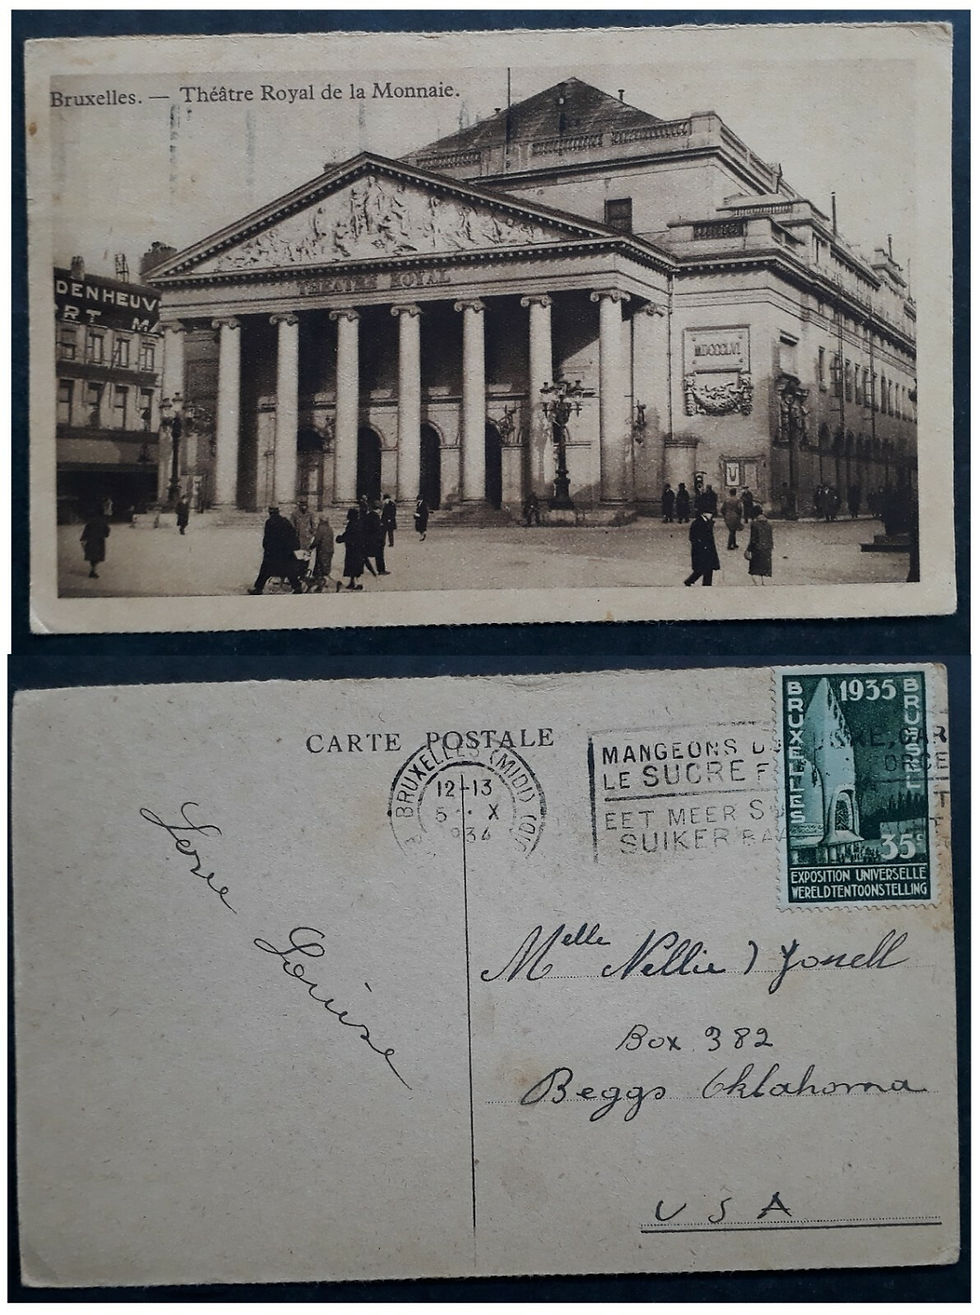 Bruxelles. — Théâtre Royal de la Monnaie.
DENHEUV
RT MA
THEATRE ROYAL
MDCCCLVI
U
CARTE POSTALE
BRUXELLES (MIDI)
12-13
5 X
1934
MANGEONS DU SUCRE, CAR
LE SUCRE FORCE
EET MEER
SUIKER BA
BRUXELLES 1935 BRUSSEL
35c
EXPOSITION UNIVERSELLE
WERELDTENTOONSTELLING
Love
Louise
Melle Nellie
Box 382
Beggs Oklahoma
USA